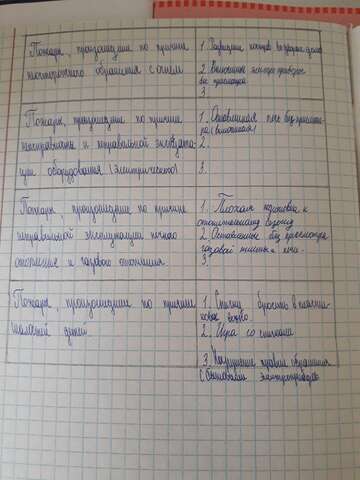 Пожары, произошедшие по причине
неосторожного обращения с огнём
1. Разведение костров
2. Включенные электро приборы
без присмотра
3.
Пожары, произошедшие по причине
неисправности и неправильной эксплуата-
ции оборудования (электрического)
1. Оставленная печь без присмот-
ра (включенная)
2.
3.
Пожары, произошедшие по причине
неправильной эксплуатации печного
отопления и газового отопления
1. Плохая подготовка к
отопительному сезону
2. Оставленные без присмотра
газовой плиты и печи
3.
Пожары, произошедшие по причине
шалостей детей
1. Спичку бросить в
ведро
2. Игра со спичками
3. Нарушение правил обращения
с бытовыми электроприборами